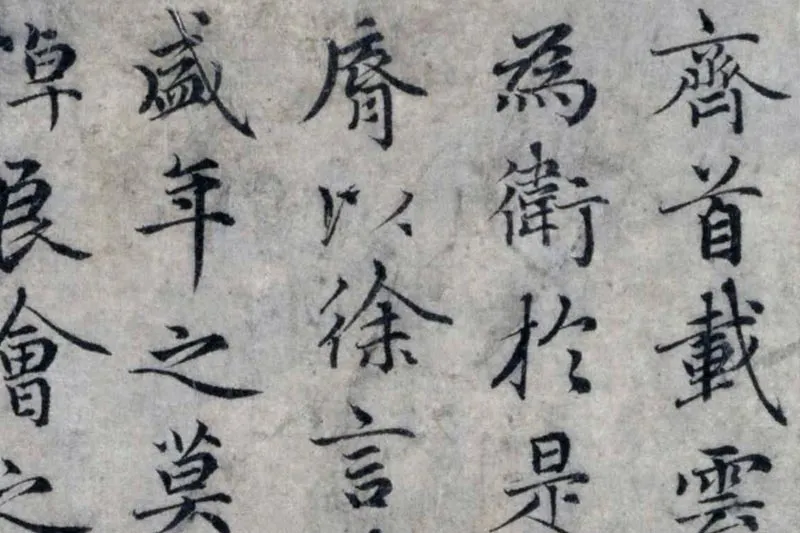 齊首載雲
為衛於是
脣以徐言
盛年之莫
悼良會之